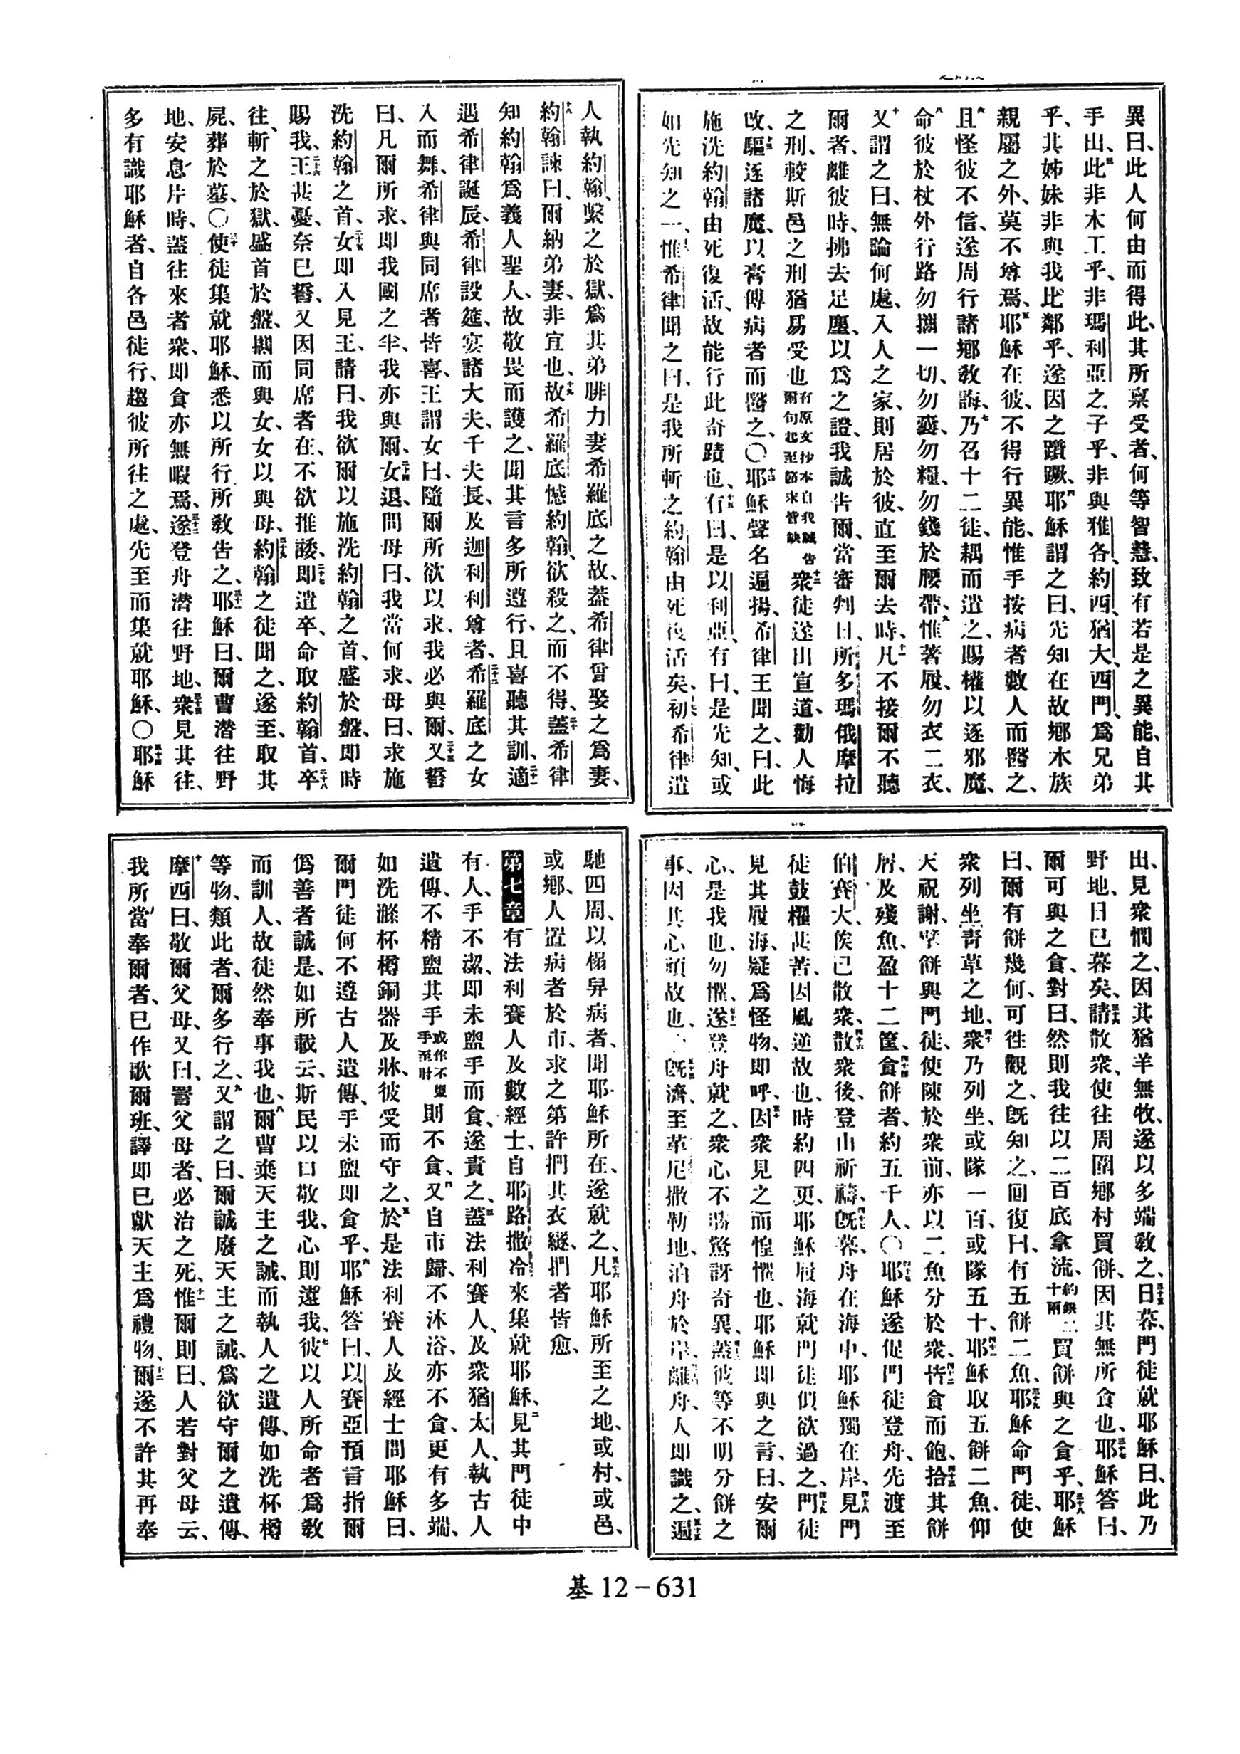 異曰、此人何由而得此、其所稟受者、何等智慧、致有若是之異能、自其
手出、此非木工乎、非瑪利亞之子乎、非與雅各、約西、猶大、西門、爲兄弟
乎、其姊妹非與我比鄰乎、遂因之躓蹶、耶穌謂之曰、先知在故鄉本族
親屬之外、莫不尊焉、耶穌在彼、不得行異能、惟手按病者數人而醫之、
且怪彼不信、遂周行諸鄉敎誨、乃召十二徒、耦而遣之、賜權以逐邪魔、
命彼於杖外、行路勿攜一切、勿囊、勿糧、勿錢於腰帶、惟著屐、勿衣二衣、
又謂之曰、無論何處、入人之家、則居於彼、直至爾去時、凡不接爾不聽
爾者、離彼時、拂去足塵、以爲之證、我誠告爾、當審判日、所多瑪俄摩拉
之刑、較斯邑之刑猶易受也 有原文抄本自我誠告爾句起至節末皆缺 衆徒遂出宣道、勸人悔
改、驅逐諸魔、以膏傅病者而醫之、〇耶穌聲名遍揚、希律王聞之、曰、此
施洗約翰由死復活、故能行此奇蹟也、有曰、是以利亞、有曰、是先知、或
如先知之一、惟希律聞之曰、是我所斬之約翰由死復活矣、初希律遣
人執約翰、繫之於獄、爲其弟腓力妻希羅底之故、蓋希律曾娶之爲妻、
約翰諫曰、爾納弟妻、非宜也、故希羅底憾約翰、欲殺之而不得、蓋希律
知約翰爲義人聖人、故敬畏而護之、聞其言多所遵行、且喜聽其訓、適
遇希律誕辰、希律設筵、宴諸大夫、千夫長、及迦利利尊者、希羅底之女
入而舞、希律與同席者皆喜、王謂女曰、隨爾所欲以求、我必與爾、又誓
曰、凡爾所求、卽我國之半、我亦與爾、女退、問母曰、我當何求、母曰、求施
洗約翰之首、女卽入見王、請曰、我欲爾以施洗約翰之首、盛於盤、卽時
賜我、王甚憂、奈已誓、又因同席者在、不欲推諉、卽遣卒、命取約翰首、卒
往、斬之於獄、盛首於盤、攜而與女、女以與母、約翰之徒聞之、遂至、取其
屍、葬於墓、〇使徒集就耶穌、悉以所行所敎告之、耶穌曰、爾曹潛往野
地、安息片時、蓋往來者衆、卽食亦無暇焉、遂登舟潛往野地、衆見其往、
多有識耶穌者、自各邑徒行、趨彼所往之處、先至而集就耶穌、〇耶穌
出、見衆憫之、因其猶羊無牧、遂以多端敎之、日暮、門徒就耶穌曰、此乃
野地、日已暮矣、請散衆、使往周圍鄉村買餅、因其無所食也、耶穌答曰、
爾可與之食、對曰、然則我往以二百底拿流 約銀二十兩 買餅與之食乎、耶穌
曰、爾有餅幾何、可往觀之、旣知之、回復曰、有五餅二魚、耶穌命門徒、使
衆列坐靑草之地、衆乃列坐、或隊一百、或隊五十、耶穌取五餅二魚、仰
天祝謝、擘餅與門徒、使陳於衆前、亦以二魚分於衆、皆食而飽、拾其餅
屑及殘魚、盈十二筐、食餅者、約五千人、〇耶穌遂促門徒登舟、先渡至
伯賽大、俟己散衆、散衆後、登山祈禱、旣暮、舟在海中、耶穌獨在岸、見門
徒鼓櫂甚苦、因風逆故也、時約四更、耶穌履海就門徒、似欲過之、門徒
見其履海、疑爲怪物、卽呼、因衆見之而惶懼也、耶穌卽與之言曰、安爾
心、是我也、勿懼、遂登舟就之、衆心不勝驚訝奇異、蓋彼等不明分餅之
事、因其心頑故也、〇旣濟、至革尼撒勒地、泊舟於岸、離舟、人卽識之、遍
馳四周、以榻舁病者、聞耶穌所在、遂就之、凡耶穌所至之地、或村、或邑、
或鄉、人置病者於市、求之第許捫其衣䍁、捫者皆愈、
第七章 有法利賽人及數經士、自耶路撒冷來集就耶穌、見其門徒中
有人、手不潔、卽未盥手而食、遂責之、蓋法利賽人、及衆猶太人、執古人
遺傳、不精盥其手 或作不盥手至肘 則不食、又自市歸、不沐浴亦不食、更有多端、
如洗滌杯樽銅器及牀、彼受而守之、於是法利賽人及經士問耶穌曰、
爾門徒何不遵古人遺傳、手未盥卽食乎、耶穌答曰、以賽亞預言指爾
僞善者誠是、如所載云、斯民以口敬我、心則遠我、彼以人所命者爲敎
而訓人、故徒然奉事我也、爾曹棄天主之誡、而執人之遺傳、如洗杯樽
等物、類此者、爾多行之、又謂之曰、爾誠廢天主之誡、爲欲守爾之遺傳、
摩西曰、敬爾父母、又曰、詈父母者、必治之死、惟爾則曰、人若對父母云、
我所當奉爾者、已作歌爾班、譯卽已獻天主爲禮物、爾遂不許其再奉
基 12－631